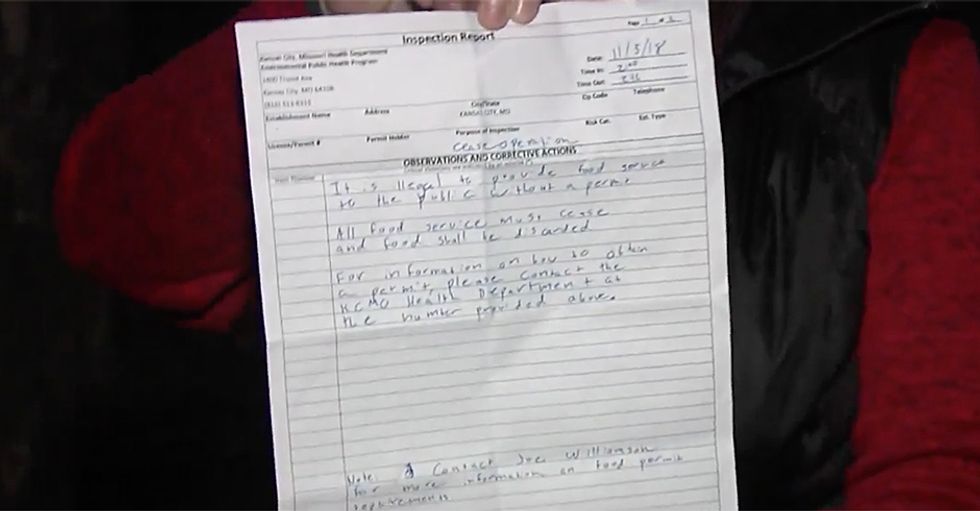 Page 1 of
Inspection Report
Kansas City, Missouri Health Department
Environmental Public Health Program
Kansas City, MO 64108
(816) 513-6315
Date: 11/5/18
Time In:
Time Out:
Establishment Name Address City/State Zip Code Telephone
KANSAS CITY, MO
License/Permit # Permit Holder Purpose of Inspection Risk Cat. Est. Type
cease operation
OBSERVATIONS AND CORRECTIVE ACTIONS
It is illegal to provide food service
to the public without a permit
All food service must cease
and food shall be discarded
For information on how to obtain
a permit, please contact the
KCMO Health Department at
the number provided above.
Note Contact Joe Williamson
for more information on food permit
requirements